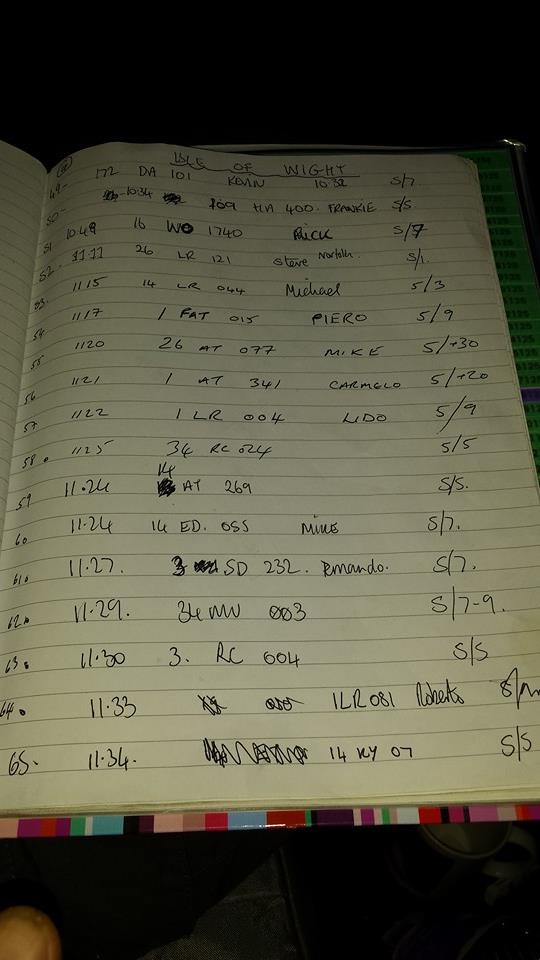 ISLE OF WIGHT
49- 172 DA 101 KEVIN 10:32 5/7
50- 10:34 109 HA 400. FRANKIE 5/5
51 10.49 16 WO 1740 RICK 5/7
52. 11.11 26 LR 121 Steve Norfolk. 5/1.
53. 1115 14 LR 044 Michael 5/3
54. 1117 1 FAT 015 PIERO 5/9
55 1120 26 AT 077 MIKE 5/+30
56 1121 1 AT 341 CARMELO 5/+20
57 1122 1 LR 004 LIDO 5/9
58. 1125 34 RC 024 5/5
59 11.24 14 AT 269 5/5.
60 11.24 14 ED. 055 MIKE 5/7.
61. 11.27. 3 SD 232. 5/7.
62. 11.29. 34 MV 003 5/7-9.
63. 11.30 3. RC 604 5/5
64. 11.33 1LR081 Roberto
65. 11.34. 14 KY 07 5/5